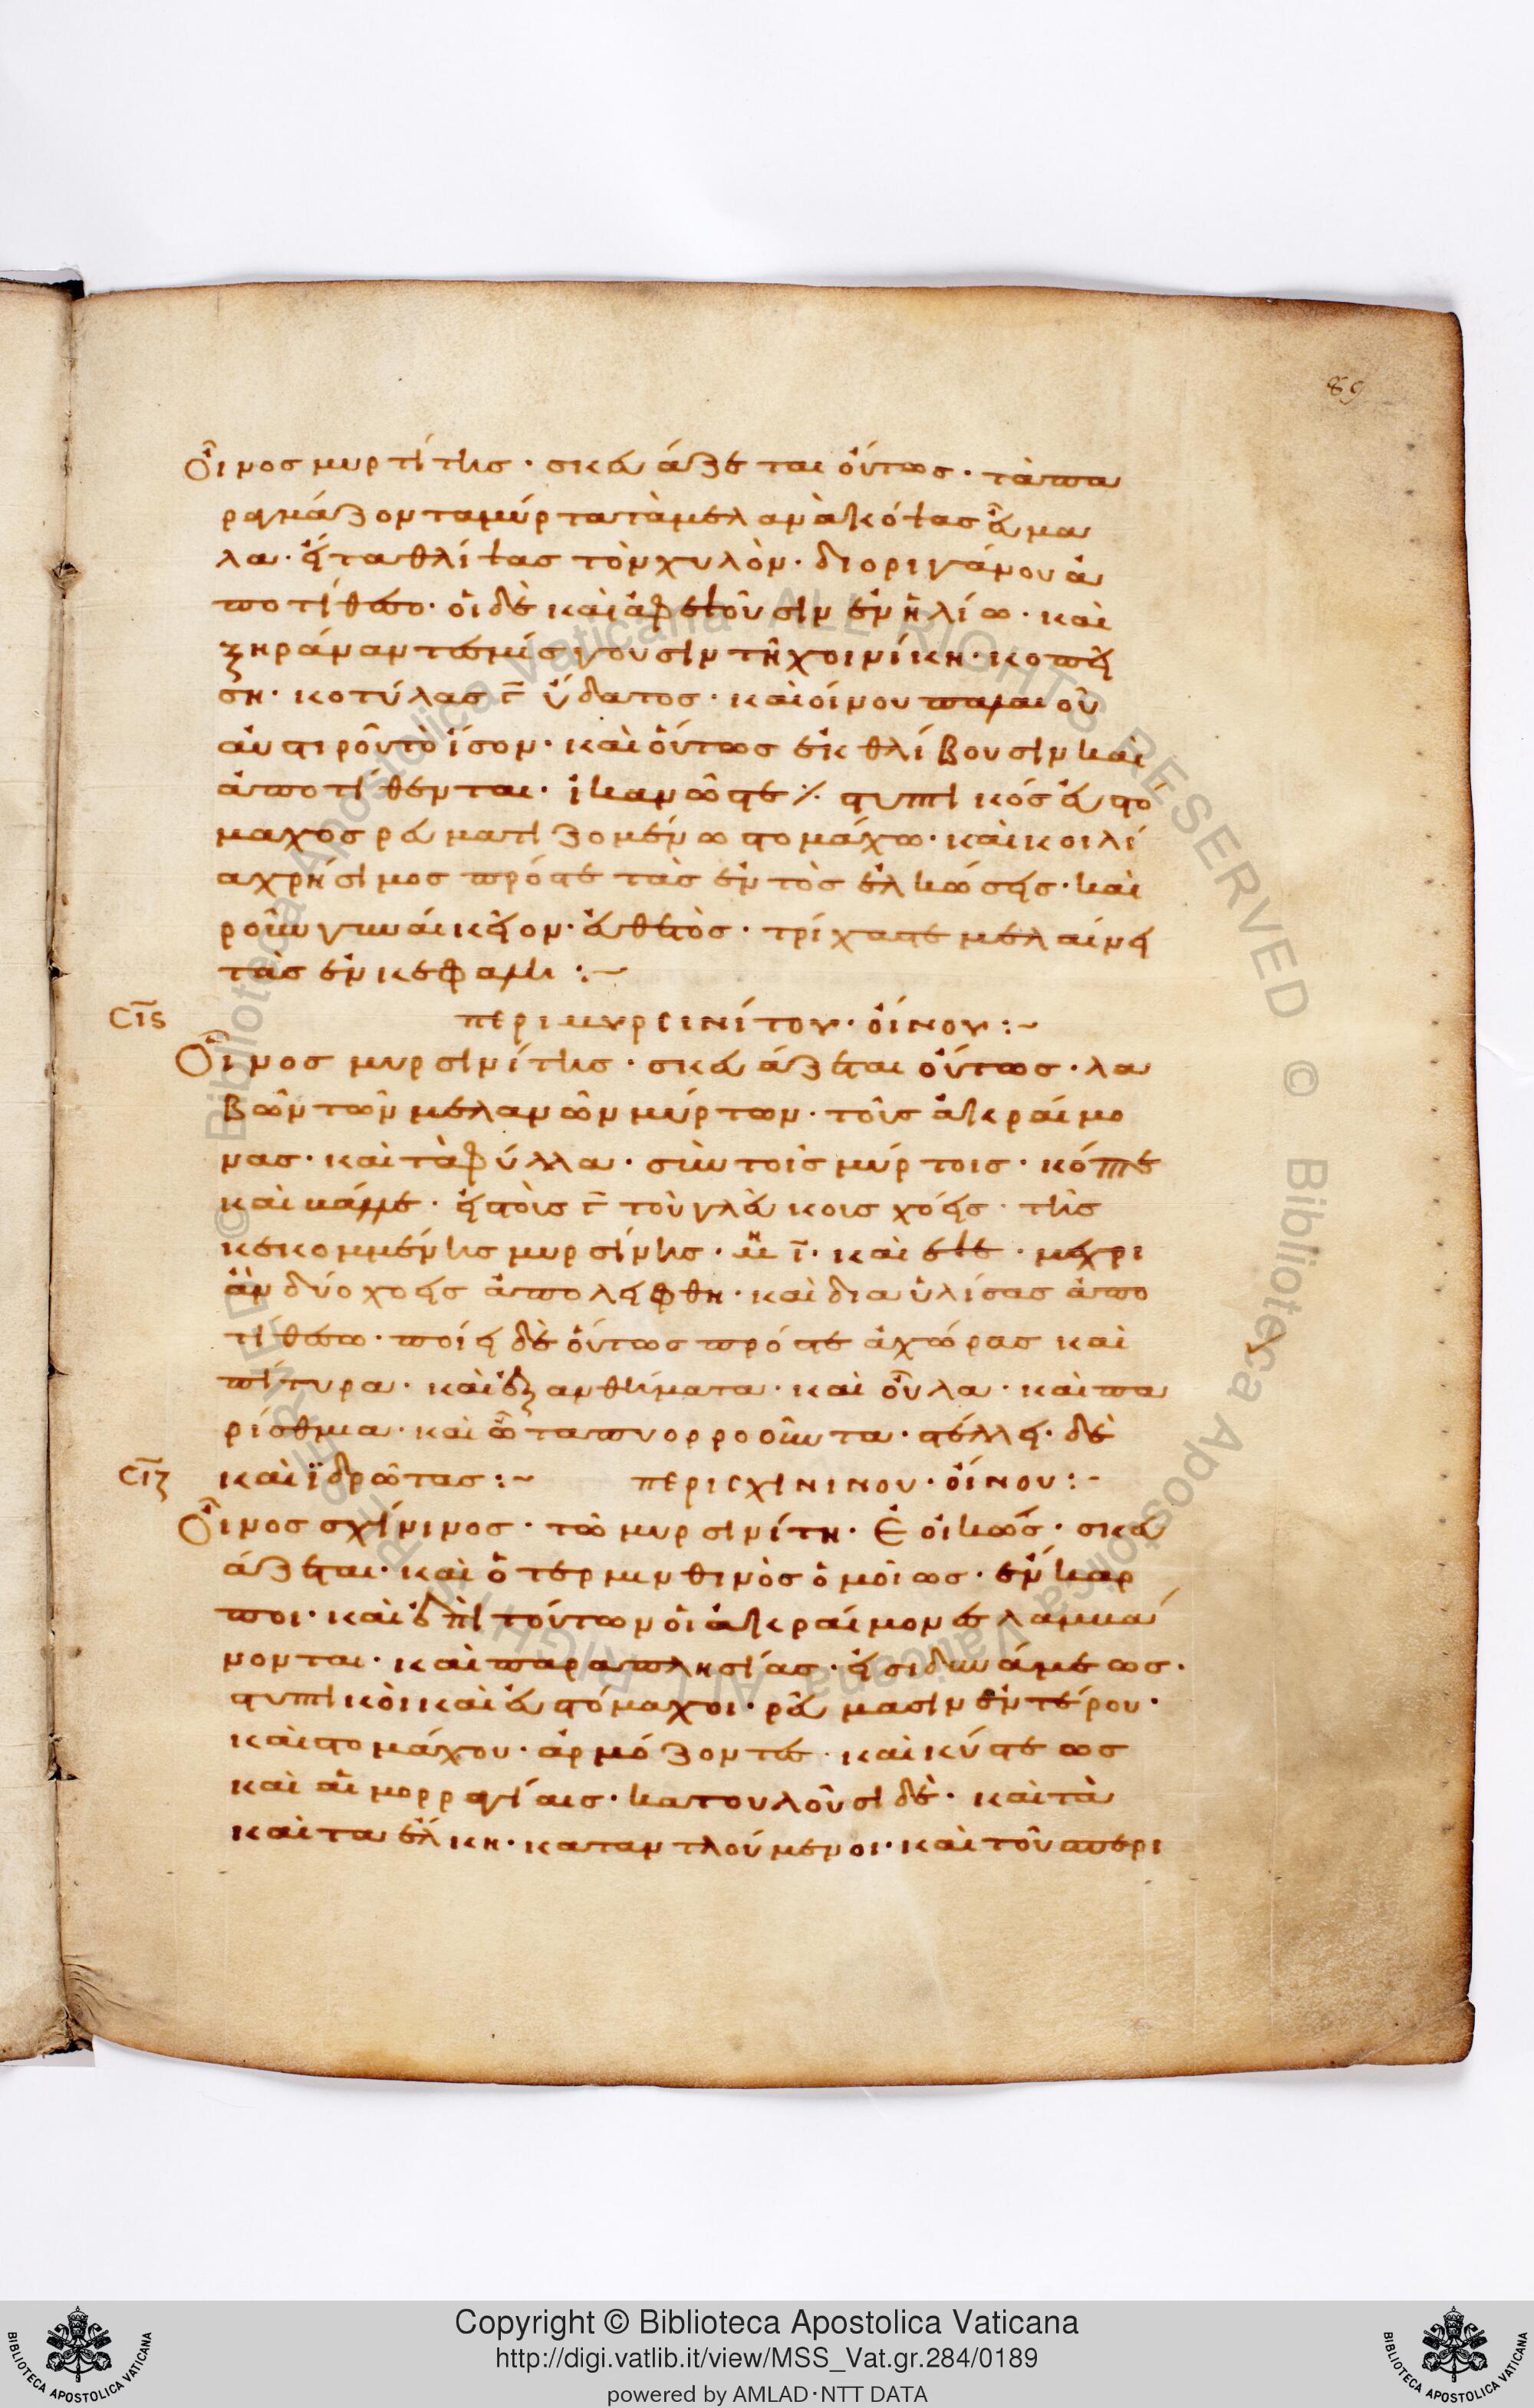 89
Οἶνος μυρτίτης · σκευάζεται οὕτως · τὰ πα
ρακμάζοντα μύρτα τὰ μέλανα κόψας ἅμα
λα · εἶτα θλίψας τὸν χυλὸν · δι ὀριγάνου ἀ
ποτίθεσο · οἱ δὲ καὶ ἀφεψοῦσιν ἐν ἡλίω · καὶ
ξηράναντες μίσγουσιν τῆ χοινίκη · κοπεί
ση · κοτύλας γ ὕδατος · καὶ οἴνου παλαιοῦ
αὐστηροῦ τὸ ἴσον · καὶ οὕτως ἐκθλίβουσιν καὶ
ἀποτίθενται · ἱκανῶς τε στυπτικός εὐστό
μαχος ρευματιζομένω στομάχω · καὶ κοιλί
α χρήσιμος πρός τε τὰς ἐντὸς ἑλκώσεις · καὶ
ροῦν γυναικεῖον · εὔθετος · τρίχας τε μελαίνει
τὰς ἐν κεφαλῆ :~
σις περι μυρσινίτου · οἴνου :~
Οἶνος μυρσινίτης · σκευάζεται οὕτως · λα
βῶν τῶν μελανῶν μύρτων · τοῖς ἀκραίμο
νας · καὶ τὰ φύλλα · σὺν τοῖς μύρτοις · κόπτε
καὶ κάλλε · εἰς τοῖς γ τοῦ γλεύκοις χόεις · τῆς
κεκομμένης μυρσίνης · μν ι · καὶ ἕψε · μέχρι
ἂν δύο χοεῖς ἀπολειφθῆ · καὶ διαϋλίσας ἀπο
τίθεσο · ποίει δὲ οὕτως πρός τε ἀχώρας καὶ
πίτυρα · καὶ ἐξανθήματα · καὶ οὖλα · καὶ πα
ρίσθμια · καὶ ὦτα πυορροοῦντα · στέλλει · δὲ
σιζ καὶ ἱδρῶτας :~ περι σχινινου · οἴνου :~
Οἶνος σχίνινος · τῶ μυρσινίτη · ἐοικώς · σκευ
άζεται · καὶ ὁ τερμινθινὸς ὁμοίως · ἔγκαρ
ποι · καὶ ἐπὶ τούτων οἱ ἀκραίμονες λαμβά
νονται · καὶ παραπλησίας · εἰσι δυνάμεως ·
στυπτικὸι καὶ εὐστόμαχοι · ρεύμασιν ἐντέρου ·
καὶ στομάχου · ἁρμόζοντες · καὶ κύστεως
καὶ αἱμορραγίαις · κατουλοῦσι δὲ · καὶ τὰ
καὶ τα ἕλκη · καταντλούμενοι · καὶ τοῦ περι
Copyright © Biblioteca Apostolica Vaticana
http://digi.vatlib.it/view/MSS_Vat.gr.284/0189
powered by AMLAD·NTT DATA